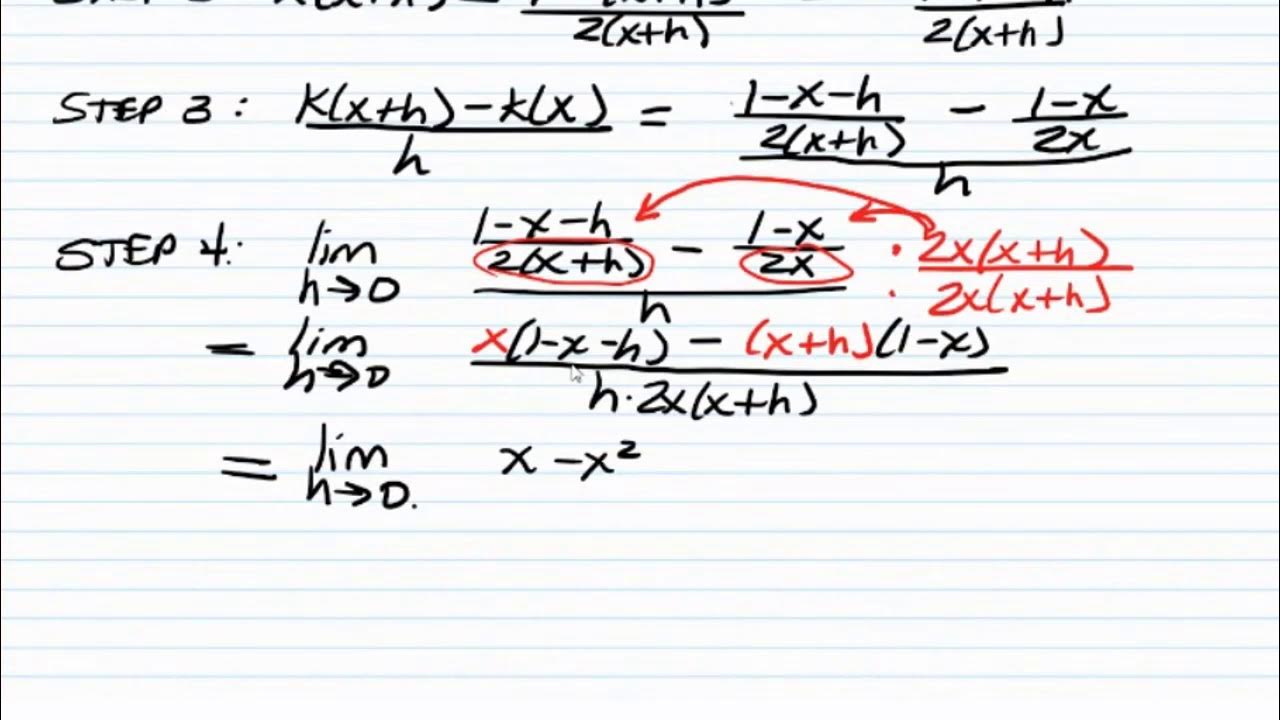 2(x+h) 2(x+h)
STEP 3: K(x+h) - K(x) / h = (1-x-h / 2(x+h) - 1-x / 2x) / h
STEP 4: lim h→0 (1-x-h / 2(x+h) - 1-x / 2x) / h · 2x(x+h) / 2x(x+h)
= lim h→0 x(1-x-h) - (x+h)(1-x) / h·2x(x+h)
= lim h→0. x - x²